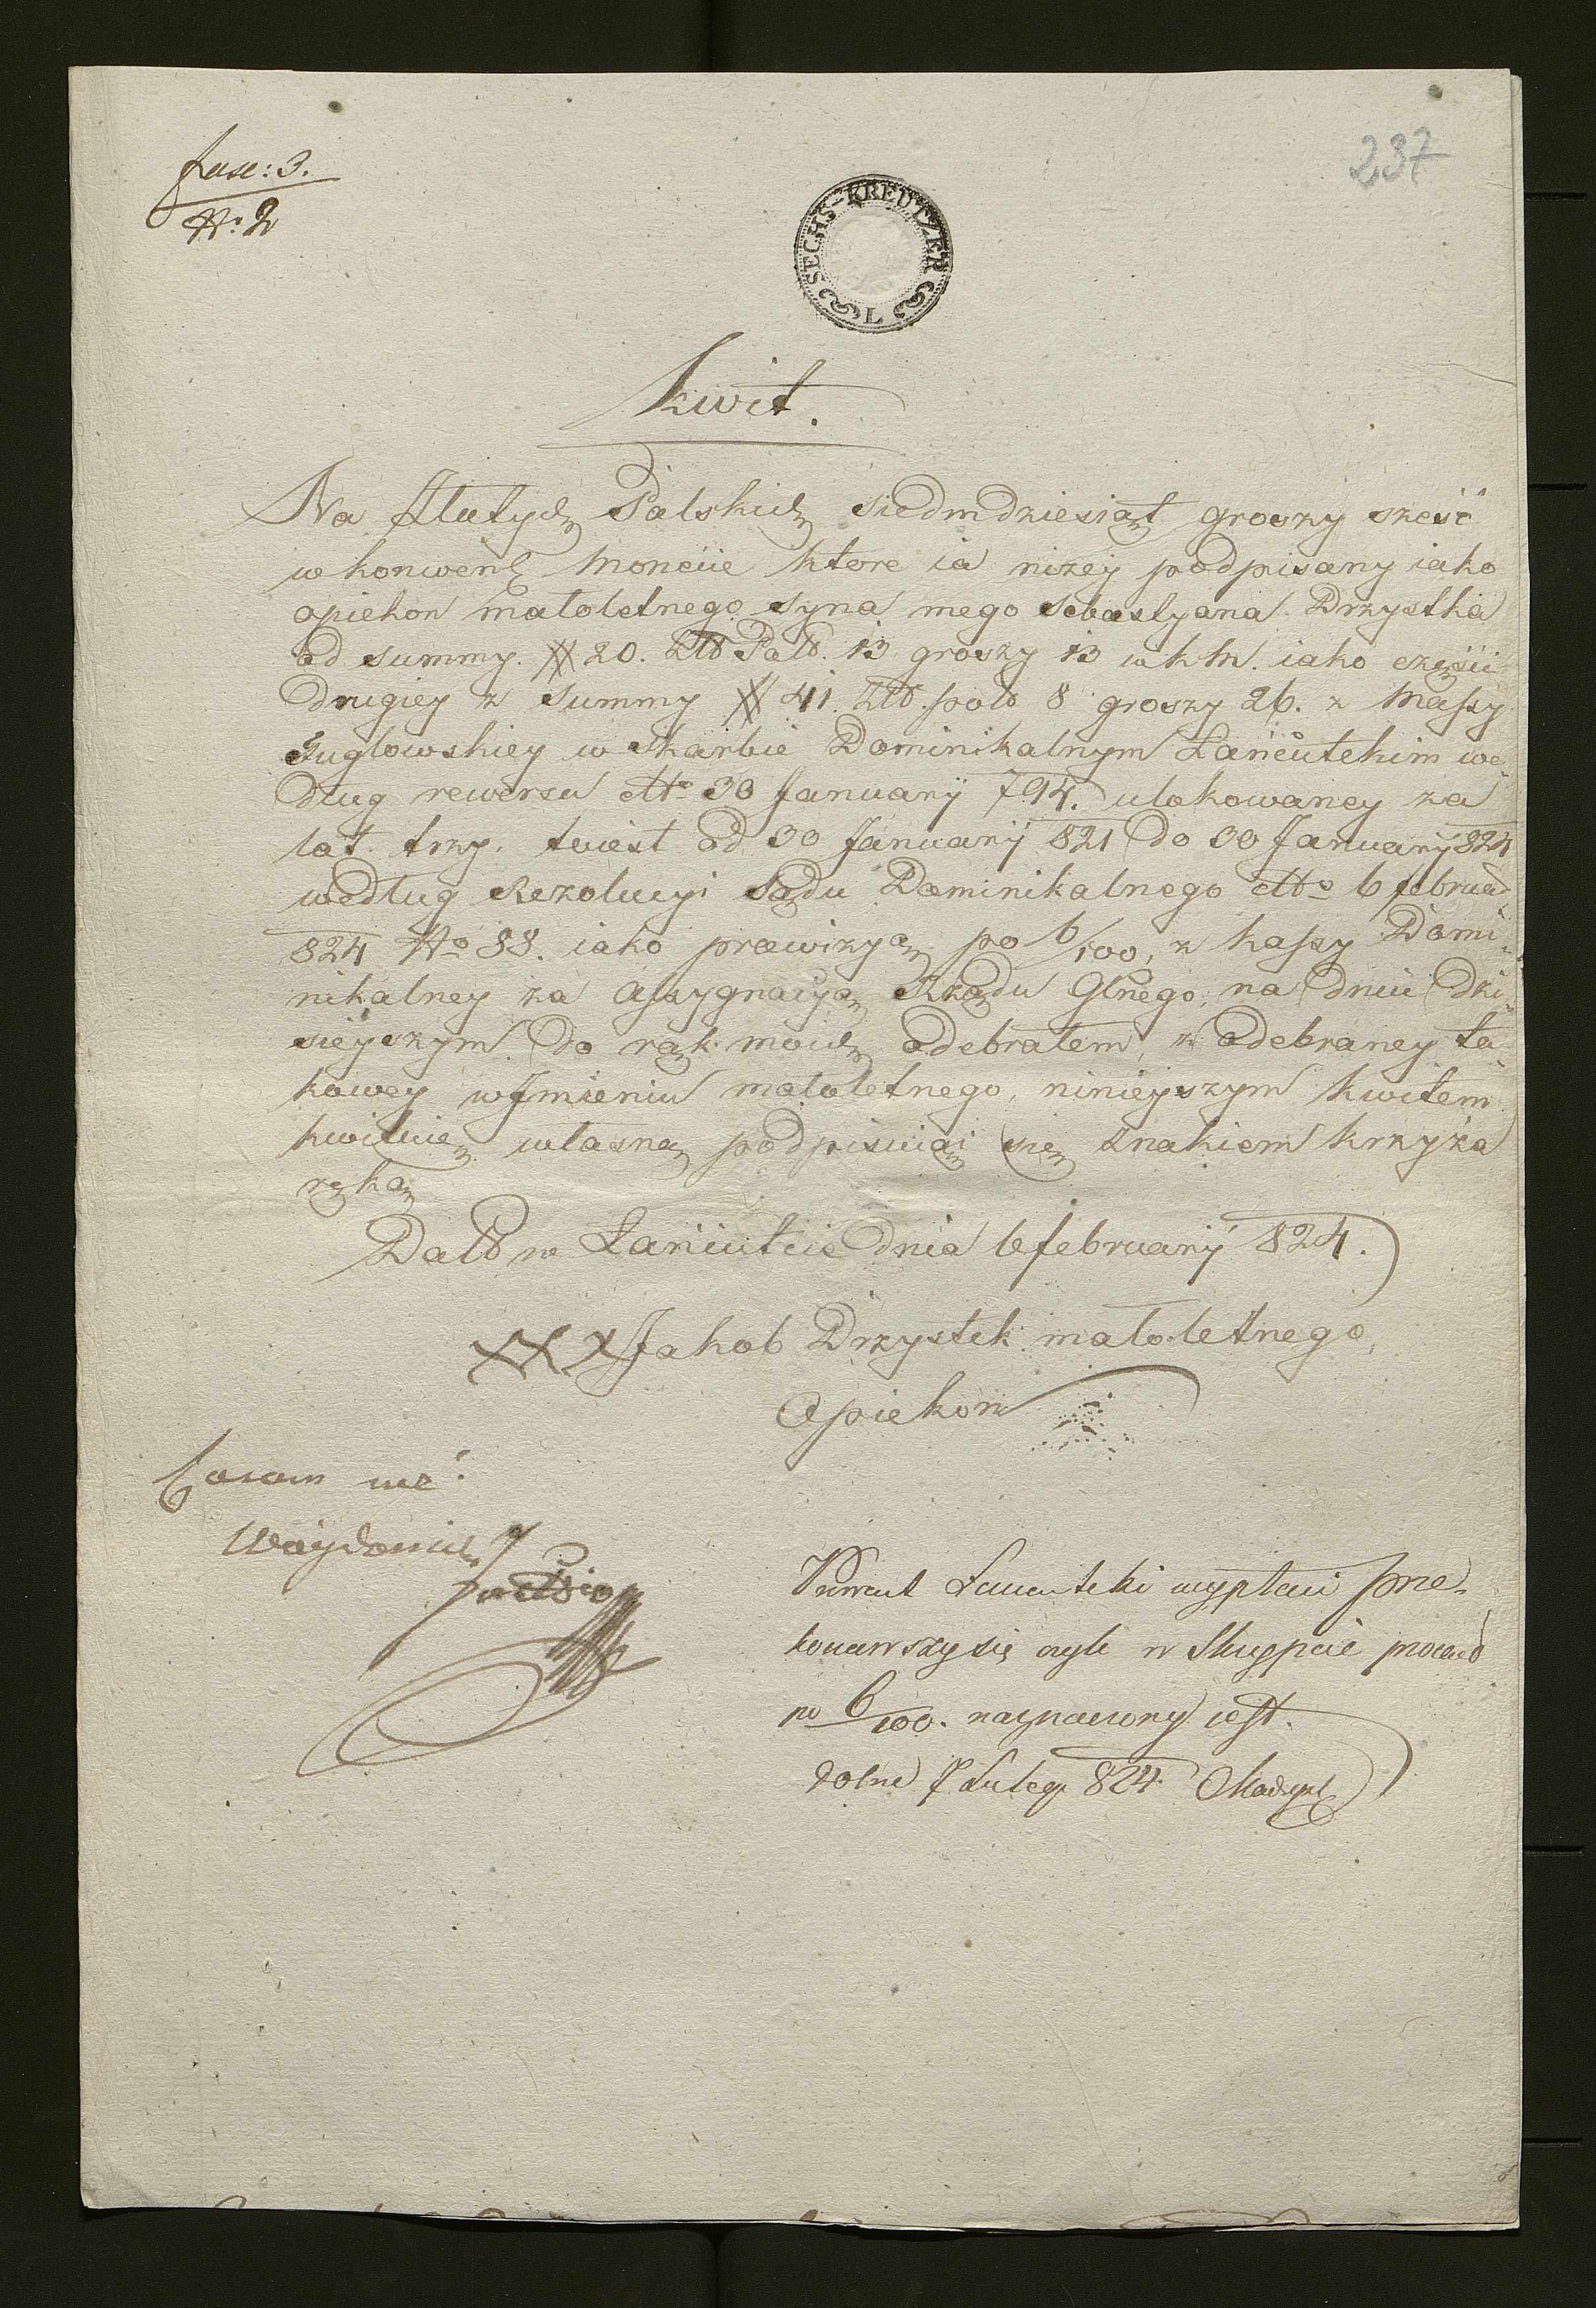 fasc: 3.
N: 2
237
SECHS-KREUTZER
L
Kwit.
Na Złotych Polskich siedmdziesiąt groszy sześć
w konwenc Moneiie ktore ia niżey podpisany iako
opiekon małoletnego syna mego Sebastyana Drzystka
od summy # 20. Złt Pols. 13 groszy 13 w k.m. iako części
drugiey z Summy # 41. Złt. pols 8 groszy 26. z Massy
Zuglowskiey w Skarbie Dominikalnym Łancutskim we-
dług rewersu dtto 30 January 794. ulokowaney za
lat trzy. to iest od 30 January 821 do 30 January 824
według Rezolucyi Sądu Dominikalnego dtto 6 februar
824 No 88. iako prowizyą po 6/100, z kassy Domi-
nikalney za assygnacyą Rządu Glnego, na dniu dzi-
sieyszym do rąk moich odebrałem, z odebraney ta-
kowey w Jmieniu małoletnego, ninieyszym kwitem
kwituię własną podpisuiąc się znakiem krzyża
ręką
Datt w Łańcutcie dnia 6 february 824.
XXX Jakob Drzystek małoletnego
Opiekon
Coram me
Woydowicz
Prowent Łancutski wypłaci prze-
konawszy się czyli w procent
po 6/100. naznaczony iest.
dolne 7 Lutego 824